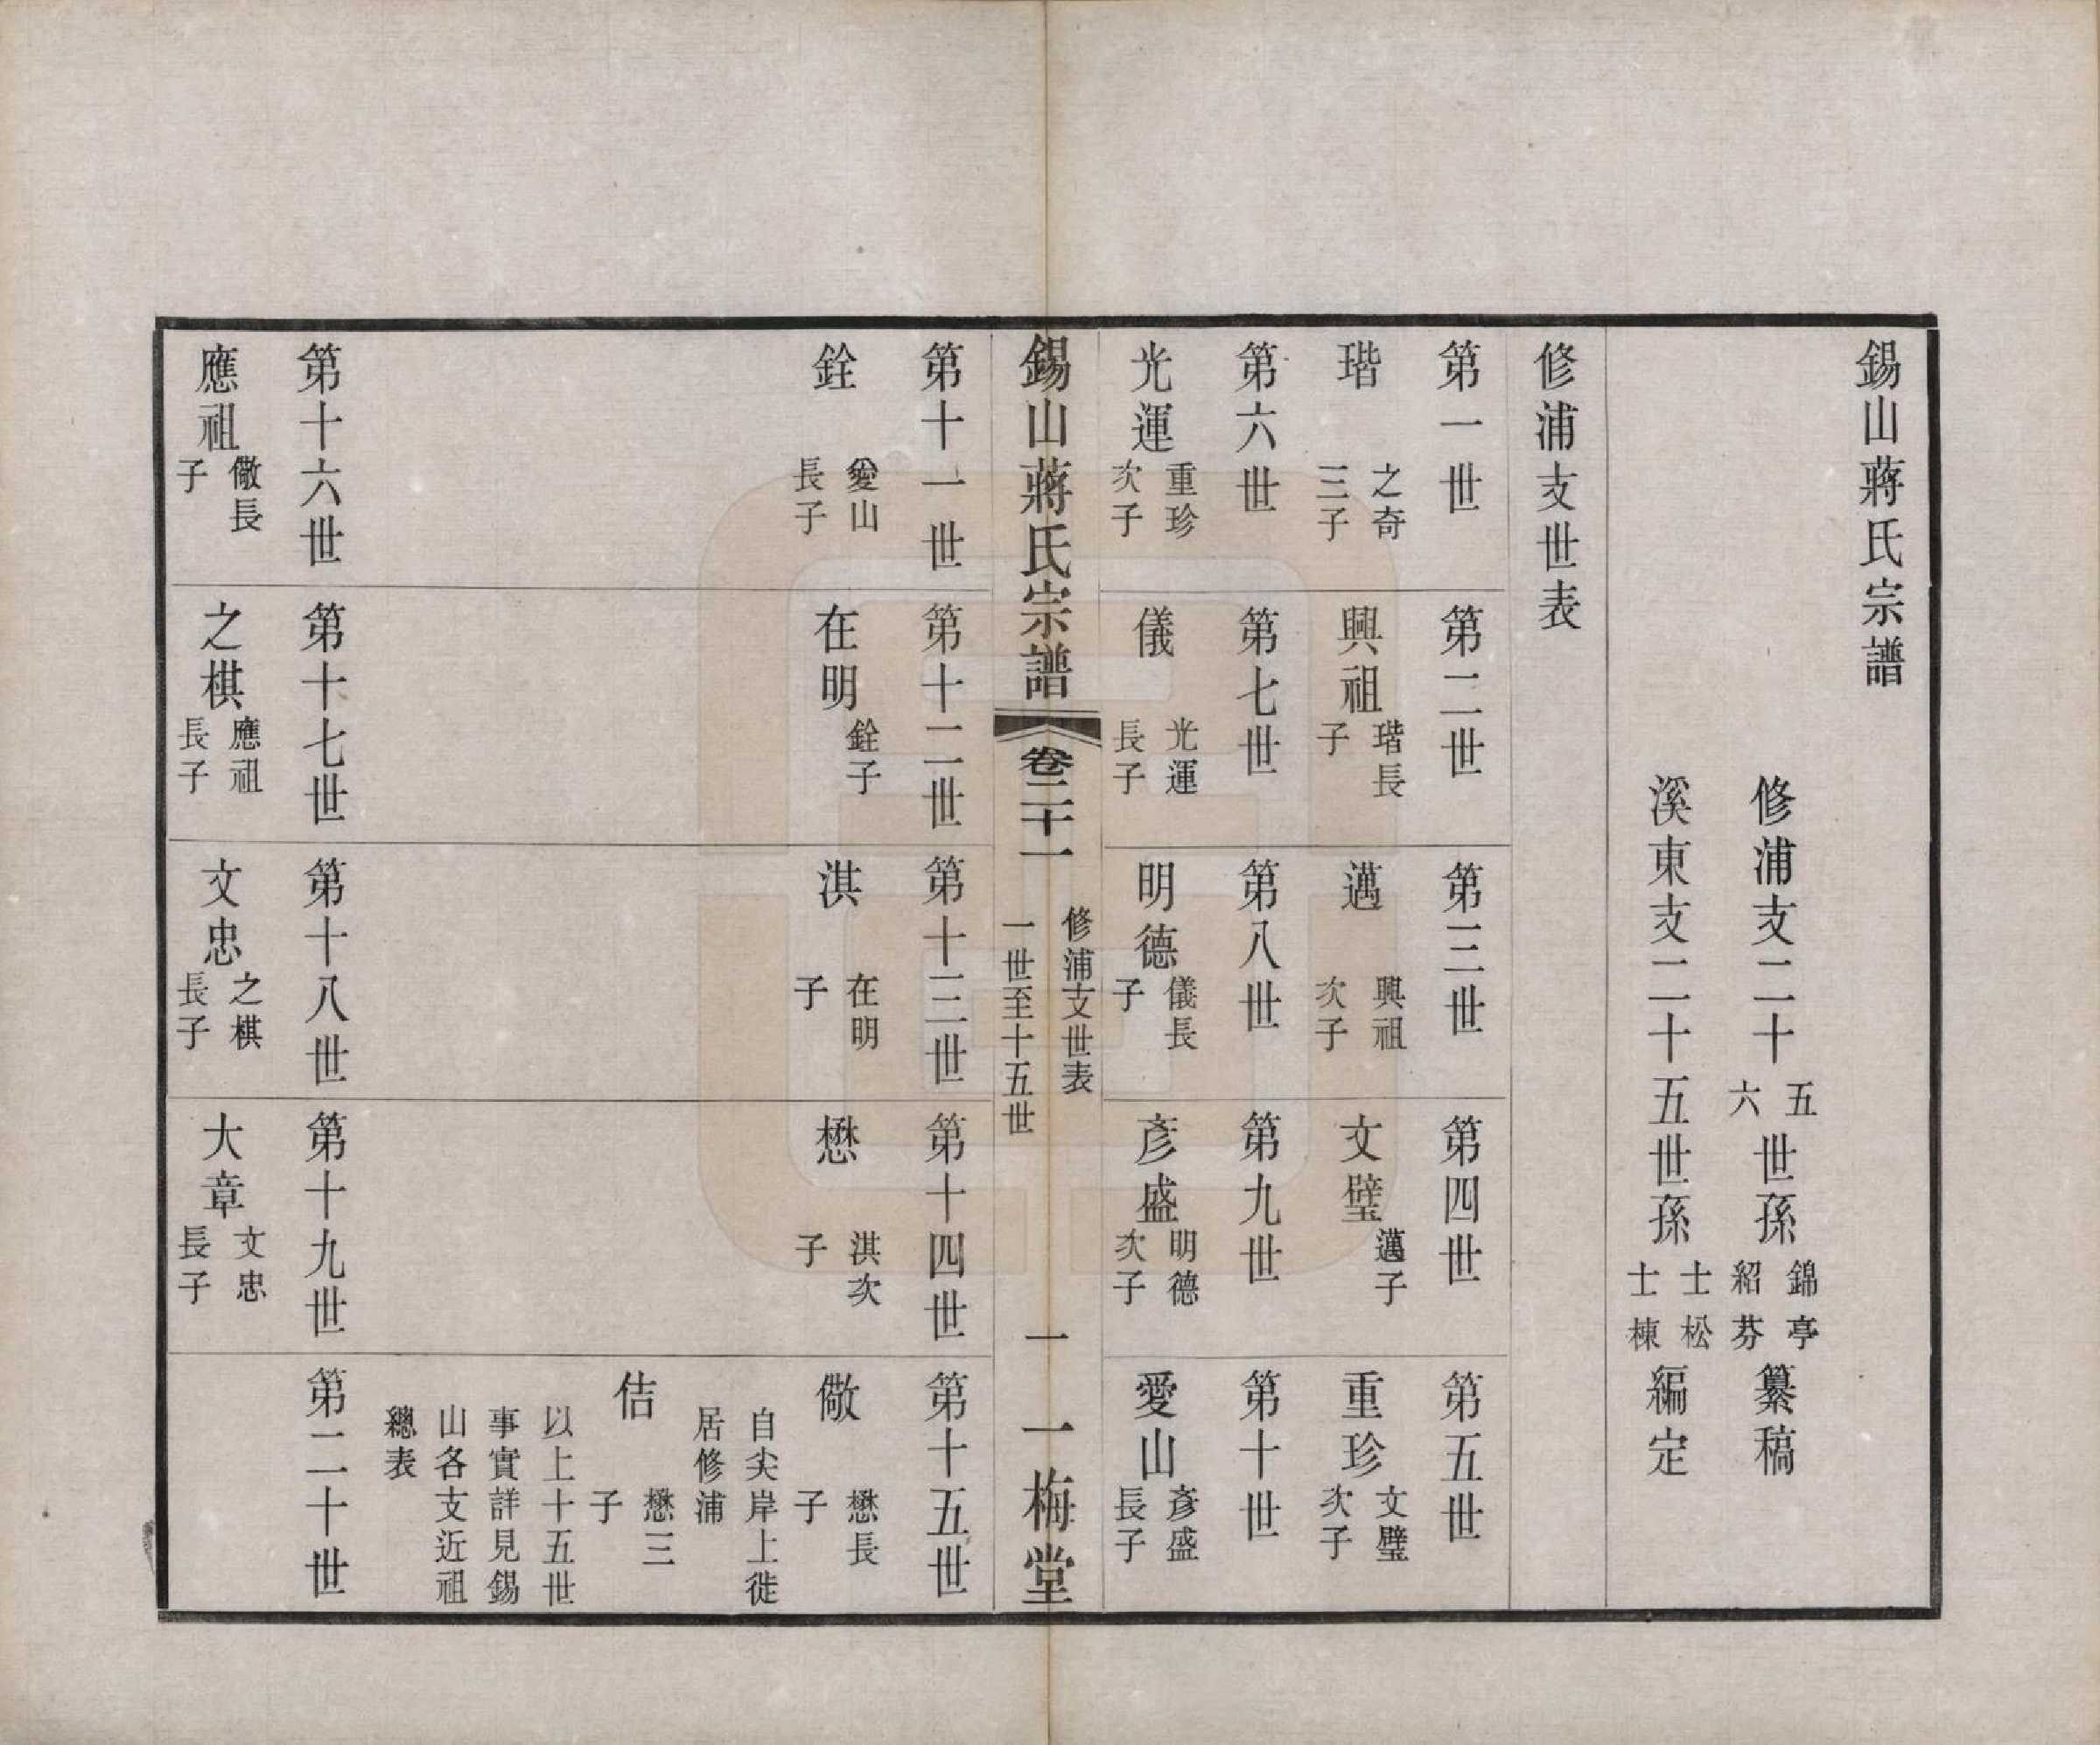 錫山蔣氏宗譜
修浦支二十五六世孫錦亭紹芬纂稿
溪東支二十五世孫士松士棟編定
修浦支世表
第一世
瑎
之奇
三子
第二世
興祖
瑎長
子
第三世
邁
興祖
次子
第四世
文璧
邁子
第五世
重珍
文璧
次子
第六世
光運
重珍
次子
第七世
儀
光運
長子
第八世
明德
儀長
子
第九世
彥盛
明德
次子
第十世
愛山
彥盛
長子
錫山蔣氏宗譜
卷二十一
修浦支世表
一世至十五世
一
一梅堂
第十一世
銓
愛山
長子
第十二世
在明
銓子
第十三世
淇
在明
子
第十四世
懋
淇次
子
第十五世
儆
懋長
子
自尖岸上徙
居修浦
佶
懋三
子
以上十五世
事實詳見錫
山各支近祖
總表
第十六世
應祖
儆長
子
第十七世
之棋
應祖
長子
第十八世
文忠
之棋
長子
第十九世
大章
文忠
長子
第二十世